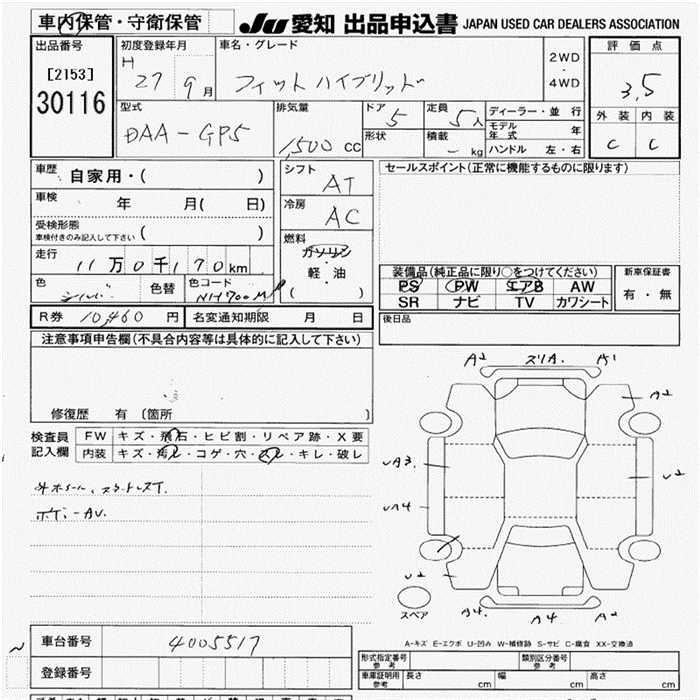 車内保管・守衛保管
JU 愛知 出品申込書 JAPAN USED CAR DEALERS ASSOCIATION
出品番号
[2153]
30116
初度登録年月
H 27 9月
車名・グレード
フィットハイブリッド
2WD
・
4WD
評価点
3.5
外装 内装
C C
型式
DAA-GP5
排気量
1,500 cc
ドア
5
形状
定員
5人
積載
- kg
ディーラー・並行
モデル年式 年
ハンドル 左・右
車歴
自家用・( )
車検
年 月( 日)
受検形態
車検付きのみ記入して下さい ( )
走行
11万0千170km
色
シルバー
色替
色コード
NH700M
シフト
AT
冷房
AC
燃料
ガソリン
・
軽・油
( )
セールスポイント(正常に機能するものに限ります)
装備品(純正品に限り○をつけてください)
PS PW エアB AW
SR ナビ TV カワシート
新車保証書
有・無
R券 10,460 円 名変通知期限 月 日
後日品
注意事項申告欄(不具合内容等は具体的に記入して下さい)
修復歴 有 〔箇所 〕
検査員
記入欄
FW キズ・飛石・ヒビ割・リペア跡・X要
内装 キズ・汚レ・コゲ・穴・スレ・キレ・破レ
ボデーAU.
A2 スリA. A1
A2
UA3.
U2
UA4
U2
A4. A4 A2
スペア
A-キズ E-エクボ U-凹み W-補修跡 S-サビ C-腐食 XX-交換済
車台番号
4005517
登録番号
形式指定番号
参考
類別区分番号
参考
車庫証明用
参考
長さ cm 幅 cm 高さ cm